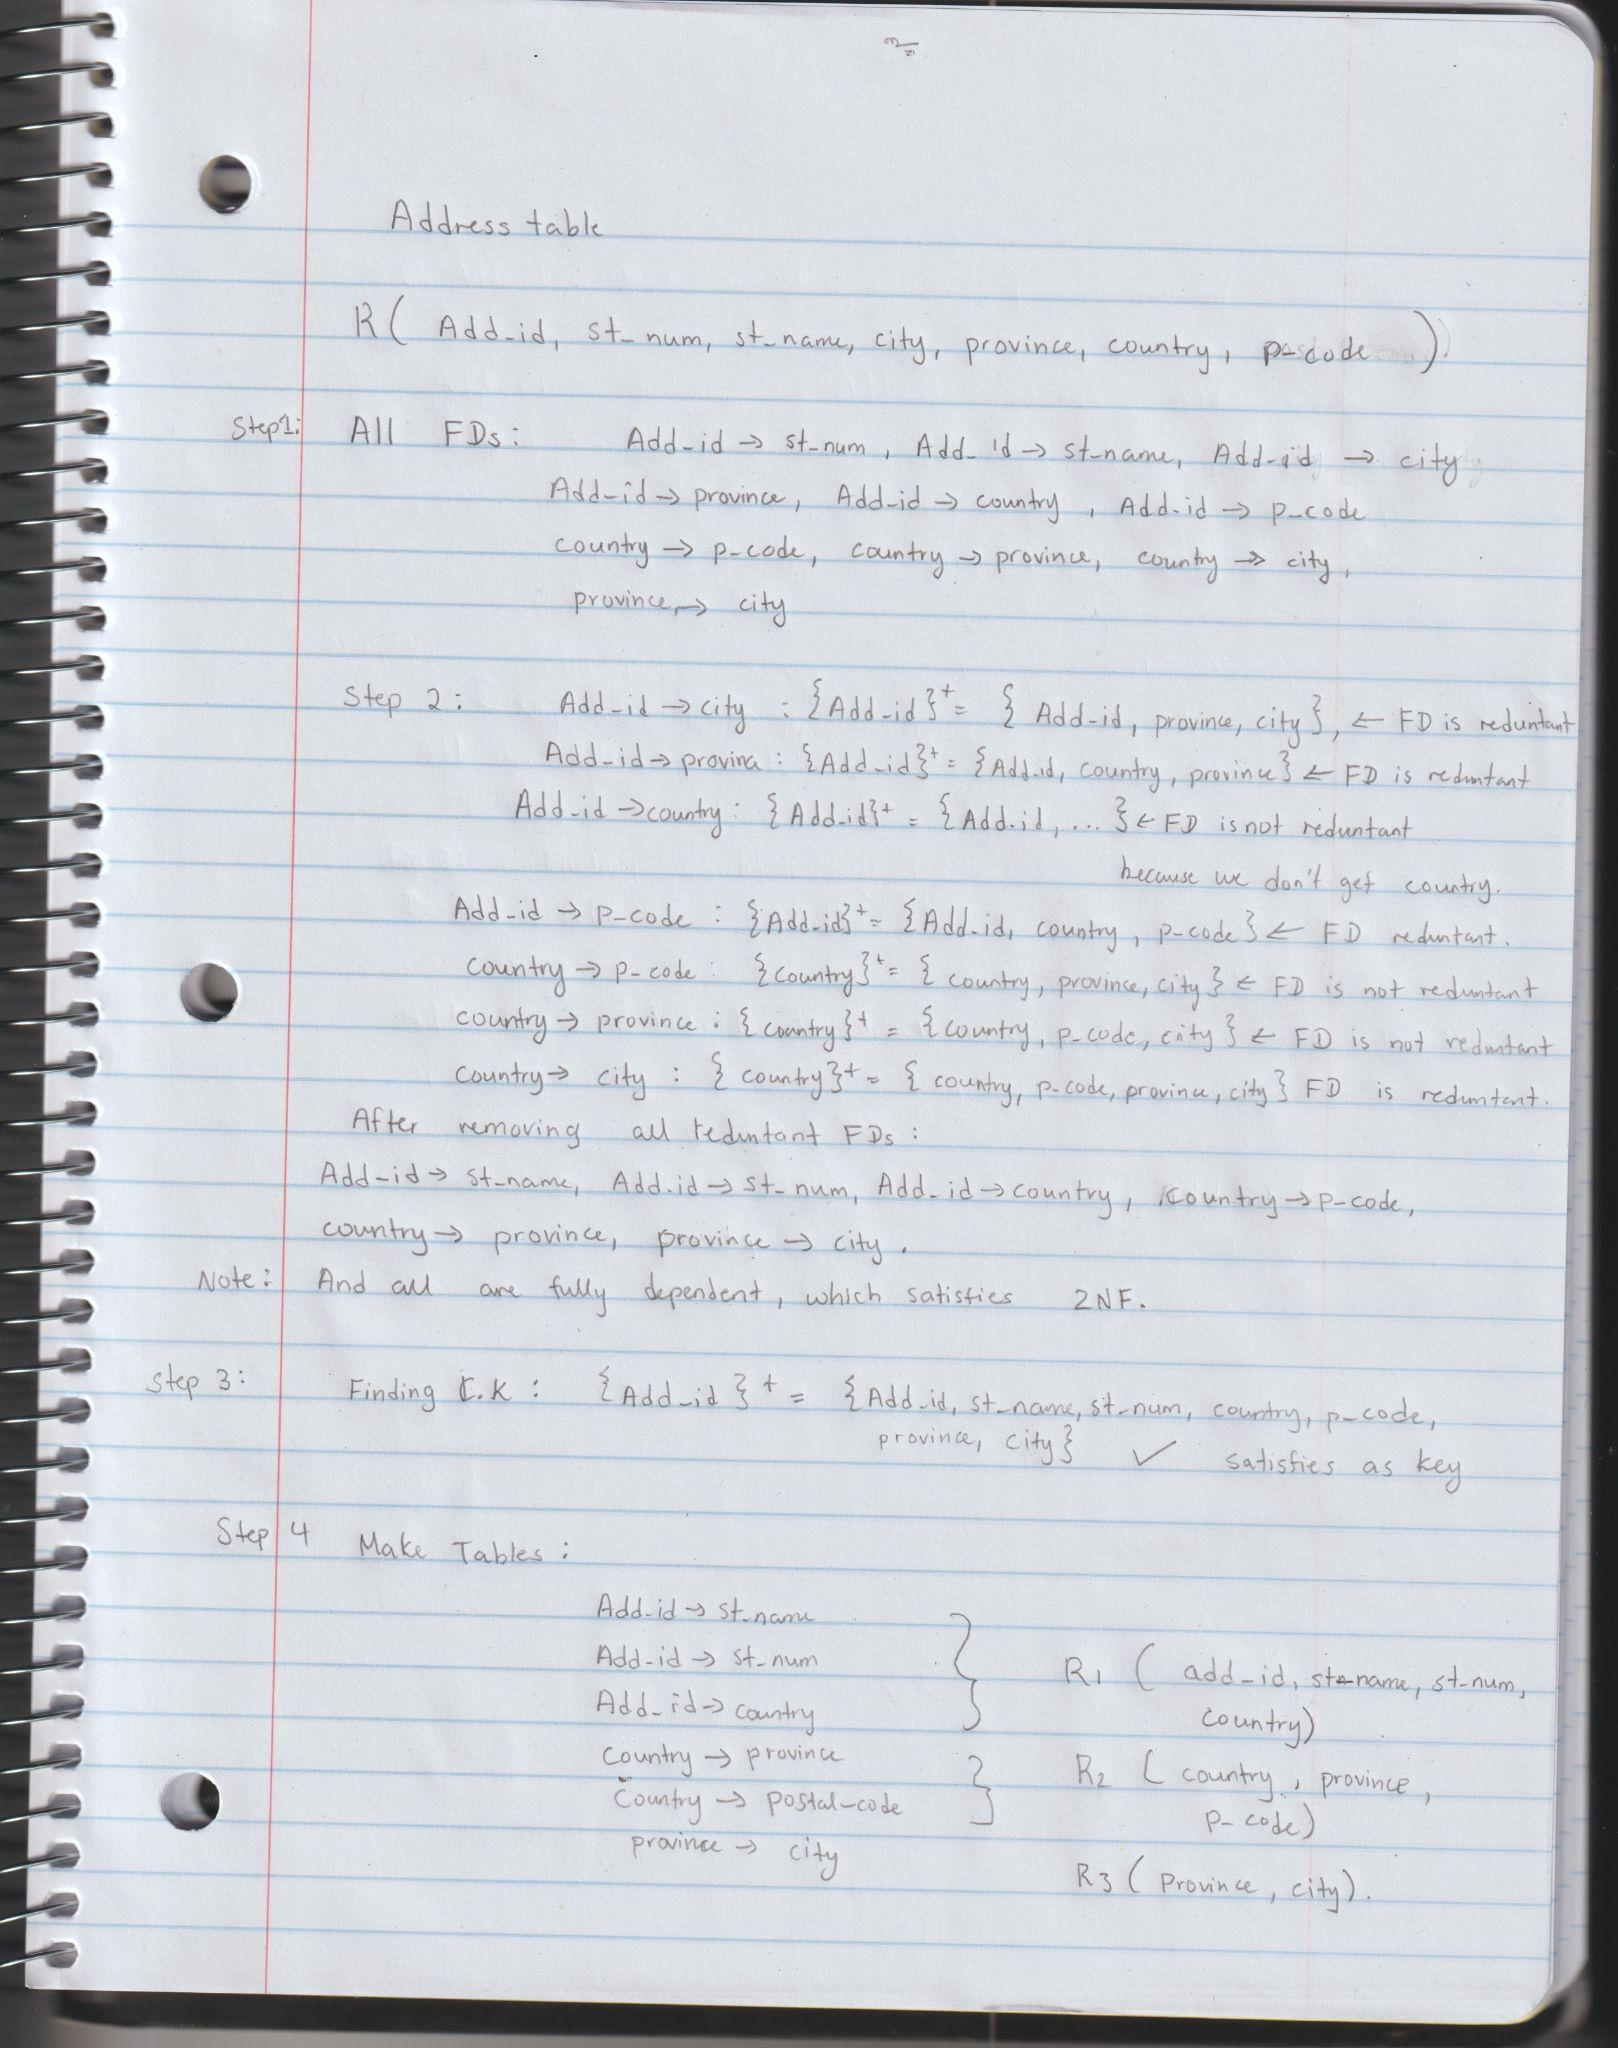 Address table
R( Add_id, st_num, st_name, city, province, country, p_code )
Step1: All FDs: Add_id → st_num, Add_id → st_name, Add_id → city
Add_id → province, Add_id → country, Add_id → p_code
country → p_code, country → province, country → city,
province → city
Step 2: Add_id → city : {Add_id}+ = { Add_id, province, city}, ← FD is reduntant
Add_id → provina : {Add_id}+ = {Add_id, country, province} ← FD is reduntant
Add_id → country : {Add_id}+ = {Add_id, ... } ← FD is not reduntant
because we don't get country.
Add_id → p_code : {Add_id}+ = {Add_id, country, p_code} ← FD reduntant.
country → p_code : {country}+ = { country, province, city } ← FD is not reduntant
country → province : { country}+ = { country, p_code, city } ← FD is not reduntant
country → city : { country}+ = { country, p_code, province, city } FD is reduntant.
After removing all reduntant FDs :
Add_id → st_name, Add_id → st_num, Add_id → country, country → p_code,
country → province, province → city.
Note: And all are fully dependent, which satisfies 2NF.
Step 3: Finding C.K : {Add_id }+ = {Add_id, st_name, st_num, country, p_code,
province, city} ✓ satisfies as key
Step 4 Make Tables :
Add_id → st_name
Add_id → st_num
R1 ( add_id, st_name, st_num,
Add_id → country
country)
Country → province
R2 ( country, province,
Country → postal-code
p_code)
province → city
R3 ( Province, city).